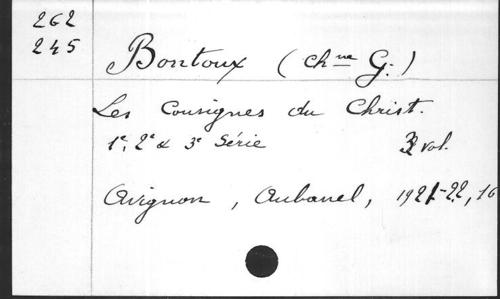 262
245
Bontoux (Chne G.)
Les Consignes du Christ.
1e, 2e & 3e Série 3 vol.
Avignon, Aubanel, 1921-22, 16